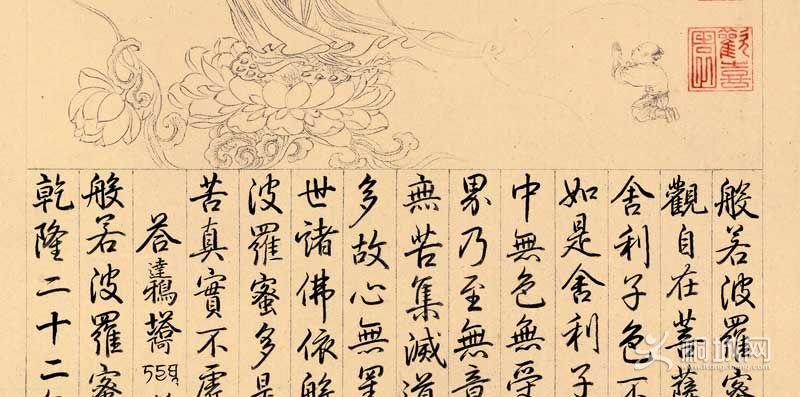 般若波羅蜜
觀自在菩薩
舍利子色不
如是舍利子
中無色無受
界乃至無意
無苦集滅道
多故心無罣
世諸佛依般
波羅蜜多是
苦真實不虛
荅達鴉
般若波羅蜜
乾隆二十二年
桐城网
www.itongcheng.com